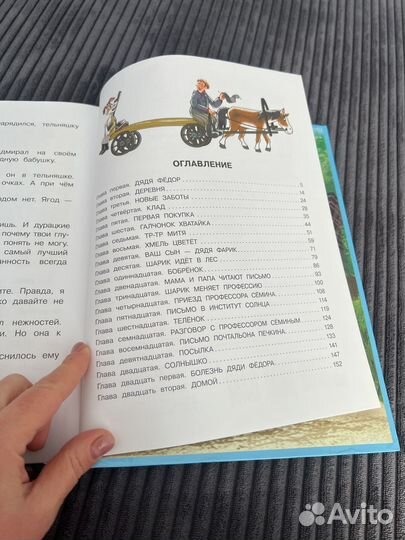 арядился, тельняшку
дмирал на своём
дную бабушку.
он в тельняшке.
очках. А при чём
дом нет. Ягод —
ишь. И дурацкие
почему твои глу-
понять не могу.
самый лучший
анность всегда
ите. Правда, я
ко давайте не
нежностей.
Но она к
снилось ему
ОГЛАВЛЕНИЕ
Глава первая. ДЯДЯ ФЁДОР 5
Глава вторая. ДЕРЕВНЯ 14
Глава третья. НОВЫЕ ЗАБОТЫ 24
Глава четвёртая. КЛАД 28
Глава пятая. ПЕРВАЯ ПОКУПКА
Глава шестая. ГАЛЧОНОК ХВАТАЙКА
Глава седьмая. ТР-ТР МИТЯ
Глава восьмая. ХМЕЛЬ ЦВЕТЁТ
Глава девятая. ВАШ СЫН — ДЯДЯ ФАРИК
Глава десятая. ШАРИК ИДЁТ В ЛЕС
Глава одиннадцатая. БОБРЁНОК
Глава двенадцатая. МАМА И ПАПА ЧИТАЮТ ПИСЬМО
Глава тринадцатая. ШАРИК МЕНЯЕТ ПРОФЕССИЮ
Глава четырнадцатая. ПРИЕЗД ПРОФЕССОРА СЁМИНА
Глава пятнадцатая. ПИСЬМО В ИНСТИТУТ СОЛНЦА
Глава шестнадцатая. ТЕЛЁНОК
Глава семнадцатая. РАЗГОВОР С ПРОФЕССОРОМ СЁМИНЫМ
Глава восемнадцатая. ПИСЬМО ПОЧТАЛЬОНА ПЕЧКИНА
Глава девятнадцатая. ПОСЫЛКА
Глава двадцатая. СОЛНЫШКО 141
Глава двадцать первая. БОЛЕЗНЬ ДЯДИ ФЁДОРА 147
Глава двадцать вторая. ДОМОЙ 152
Avito